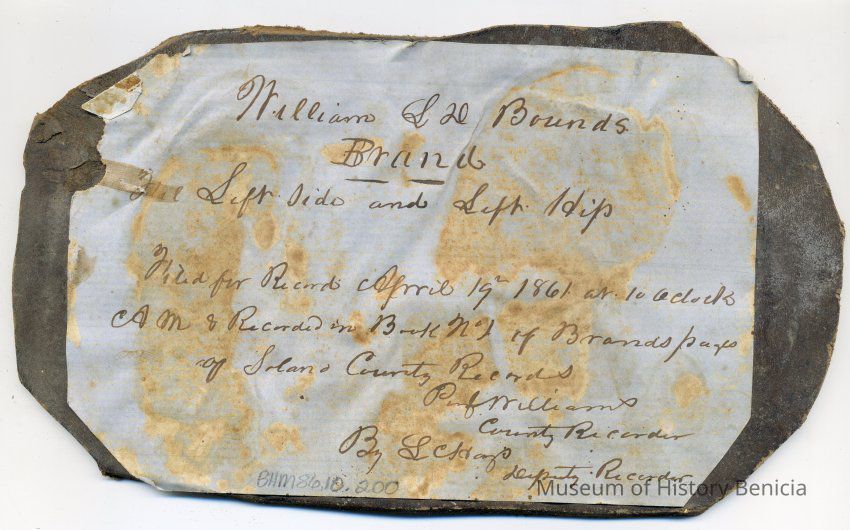 William L D Bounds
Brand
Left Side and Left Hip
Filed for Record April 19th 1861 at 10 oclock
A M & Recorded in Book No 1 of Brands page
of Solano County Records
Williams
County Recorder
By L C
Deputy Recorder
BHM86.10.200
Museum of History Benicia